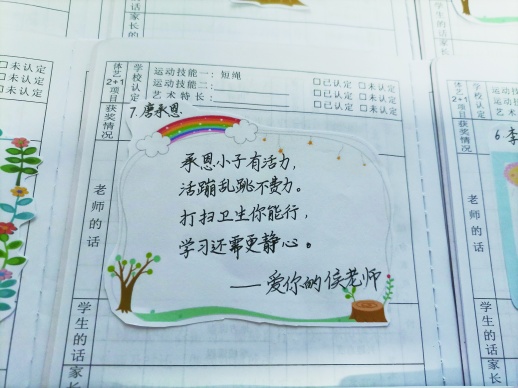 未认定
未认定
未认定
体艺2+1项目
学校认定
运动技能一：短绳
运动技能二：
艺术特长：
□已认定 □未认定
□已认定 □未认定
□已认定 □未认定
获奖情况
7.唐承恩
承恩小子有活力，
活蹦乱跳不费力。
打扫卫生你能行，
学习还需更静心。
——爱你的侯老师
老师的话
学生的话
家长
体艺2+1项目
学校认定
运动
运动
艺术
获奖情况
6.李
老师的话
学生的话